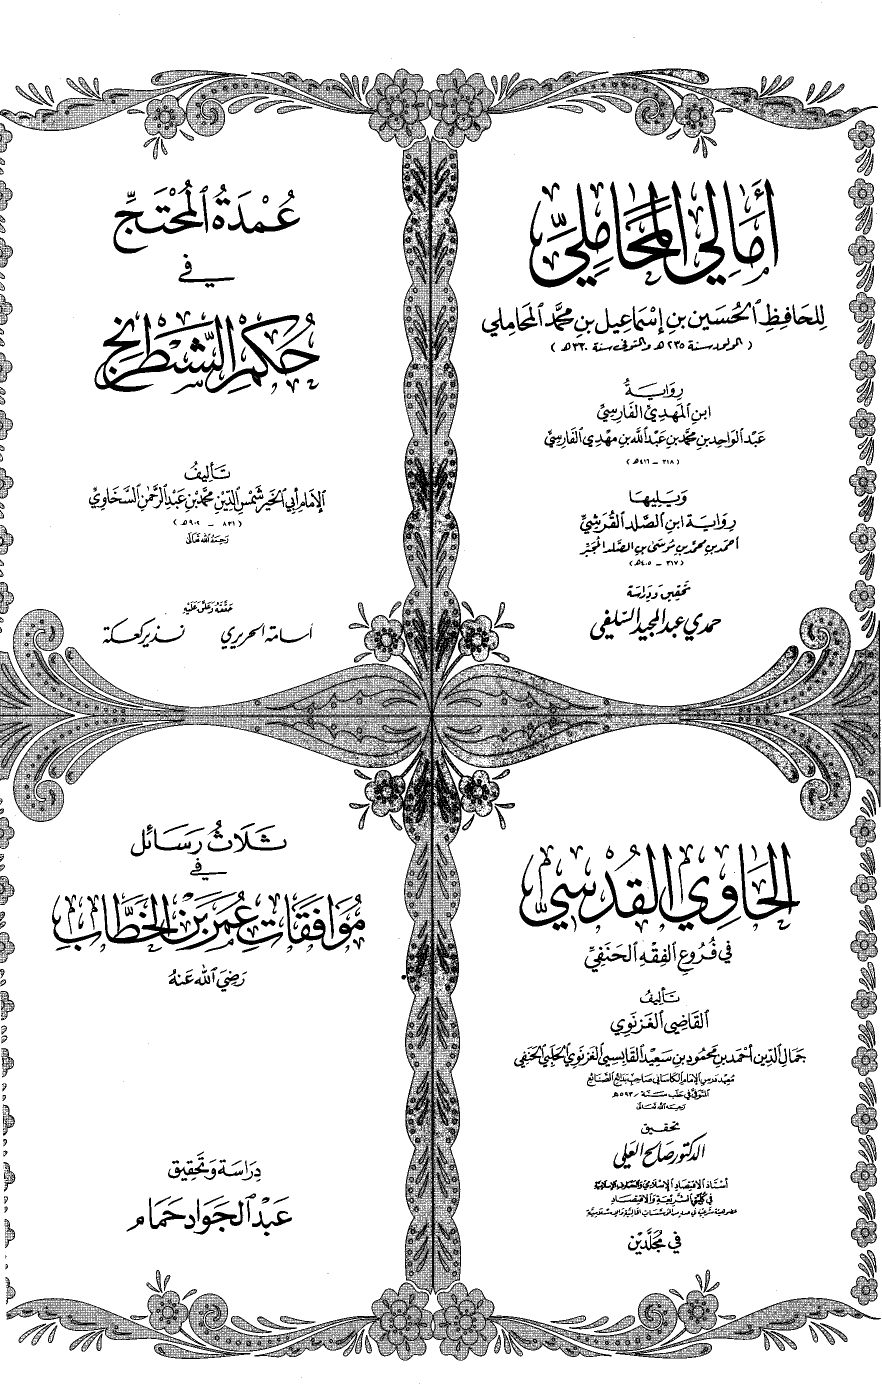 أَمَالِي المَحَامِلِيّ
لِلحَافِظِ الحُسَيْنِ بنِ إِسْمَاعِيل بنِ مُحَمَّد المَحَامِلي
( المولود سنة ٢٣٥ هـ والمتوفى سنة ٣٣٠ هـ )
رِوَايَةُ
ابنِ المَهْدِيِّ الفَارِسِيِّ
عَبْد الوَاحِد بن مُحَمَّد بن عَبْد اللَّه بن مَهْدِي الفَارِسِيّ
(٣١٨ - ٤١٦هـ)
وَيَلِيهَا
رِوَايَة ابن الصَّلت القُرَشِيِّ
أحْمَد بن مُحَمَّد بن مُوسَى بن الصَّلت المُجَبّر
(٣١٧ - ٤٠٥هـ)
تحقِيق وَدِرَاسَة
حمدي عبد المجيد السّلفي
عُمْدَةُ المُحْتَجِّ
فِي
حُكْمِ الشَّطْرَنْجِ
تَأليفُ
الإمَام أبي الخَير شَمْس الدِّين مُحَمَّد بْن عَبْد الرَّحمٰن السَّخَاوِيّ
(٨٣١ - ٩٠٢هـ)
رَحِمَهُ اللَّه تَعَالَى
حَقَّقَهُ وَعَلَّقَ عَلَيْهِ
أسَامَة الحريري نَذير كعكة
الحَاوِي القُدْسِيّ
في فُرُوعِ الفِقْهِ الحَنَفِيِّ
تَأليفُ
القَاضِي الغَزْنَوِي
جَمَال الدِّين أحْمَد بن مَحْمُود بن سَعِيد القَابِسِي الغَزْنَوِي الحَلَبِي الحَنَفِي
مُعِيد دَرس الإمَام الكَاسَاني صَاحِب بَدَائِع الصَّنَائِع
المُتَوَفَّى في حَلَب سَنَة ٥٩٣هـ
رَحِمَهُ اللَّه تَعَالَى
تحقيق
الدكتور صَالح العَلي
أستَاذ الاقتِصَاد الإسْلَامِي وَالمصَارف الإسلَامِيَّة
في كُلِّيَتَي الشَّرِيعَة وَالاقتِصَاد
في مُجَلَّدَيْن
ثَلَاثُ رَسَائِل
فِي
مُوَافَقَاتِ عُمَرَ بْنِ الخَطَّابِ
رَضِيَ اللَّه عَنهُ
دِرَاسَة وَتَحْقِيق
عَبْد الجَوَاد حَمَام